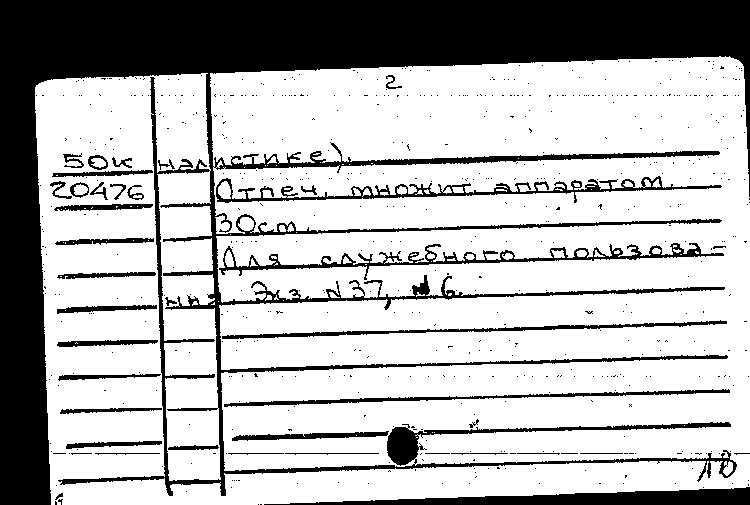 2
50к налистике).
20476 Отпеч. множит. аппаратом.
30см.
Для служебного пользова-
ния. Экз. N37, N6.